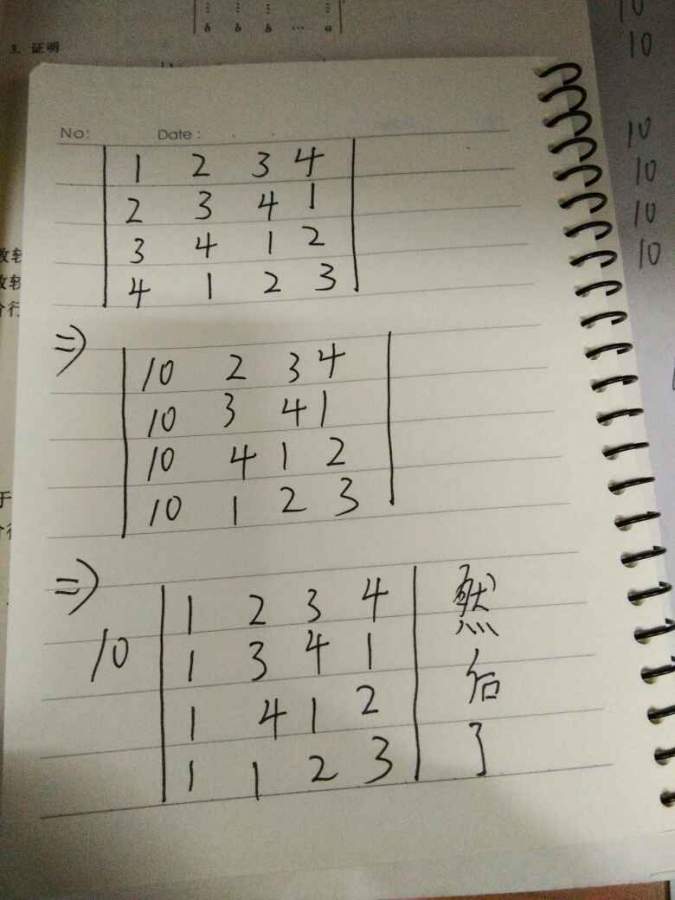 ⋮ ⋮ ⋮ ⋮
b b b … a
3. 证明
No: Date :
1 2 3 4
2 3 4 1
3 4 1 2
4 1 2 3
⇒
10 2 3 4
10 3 4 1
10 4 1 2
10 1 2 3
⇒
10
1 2 3 4
1 3 4 1
1 4 1 2
1 1 2 3
然
后
了
10
10
10
10
10
10